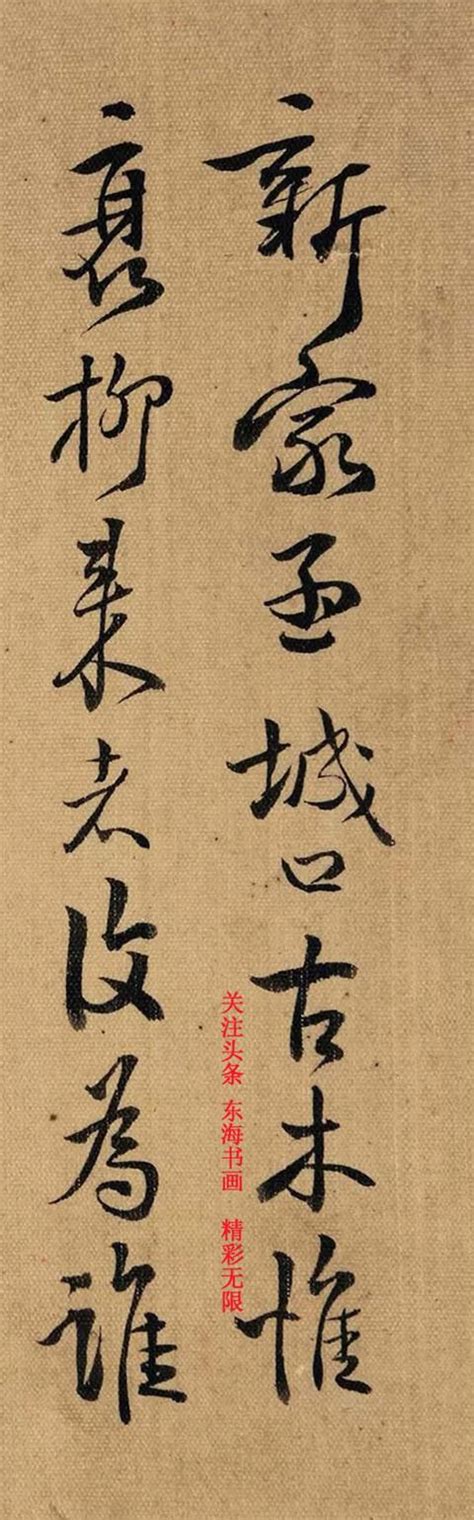 新家孟城口古木惟
衰柳來者復為誰
关注头条 东海书画 精彩无限